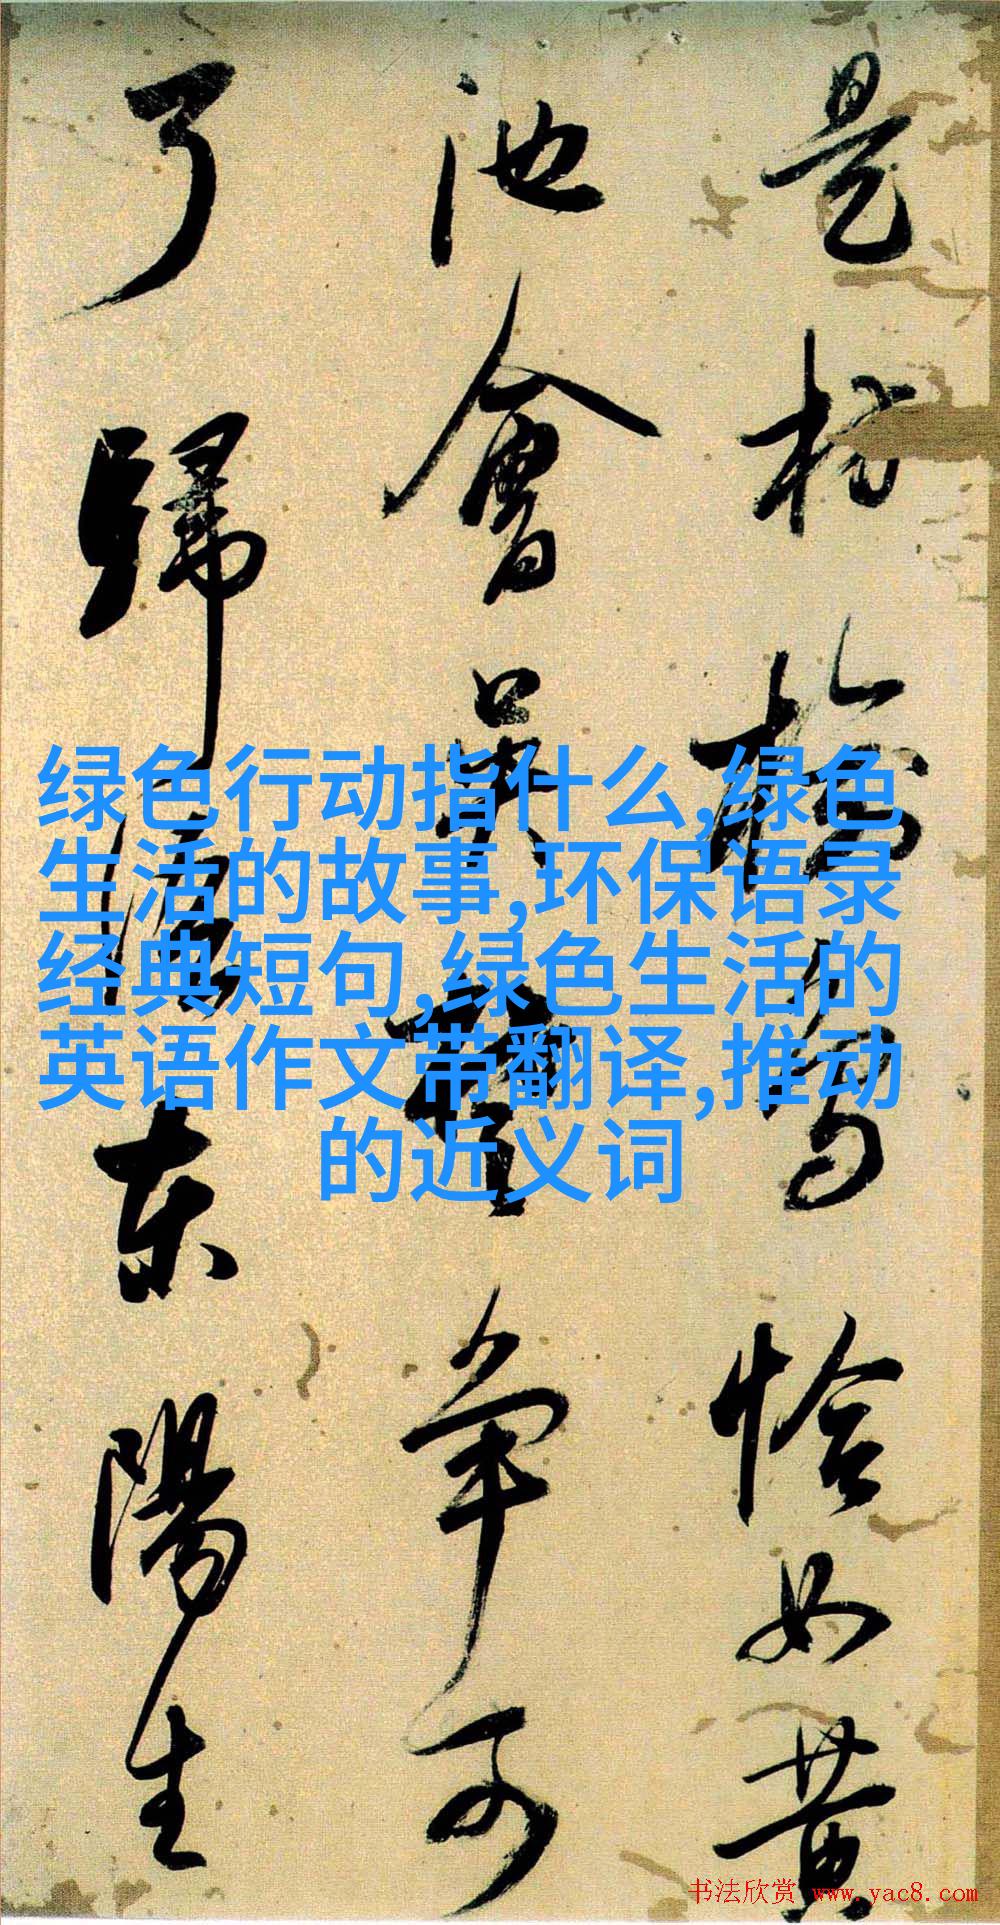 是枋榆為恰如黃
池會吳晉爭可
了歸老東陽生
绿色行动指什么,绿色
生活的故事,环保语录
经典短句,绿色生活的
英语作文带翻译,推动
的近义词
书法欣赏 www.yac8.com